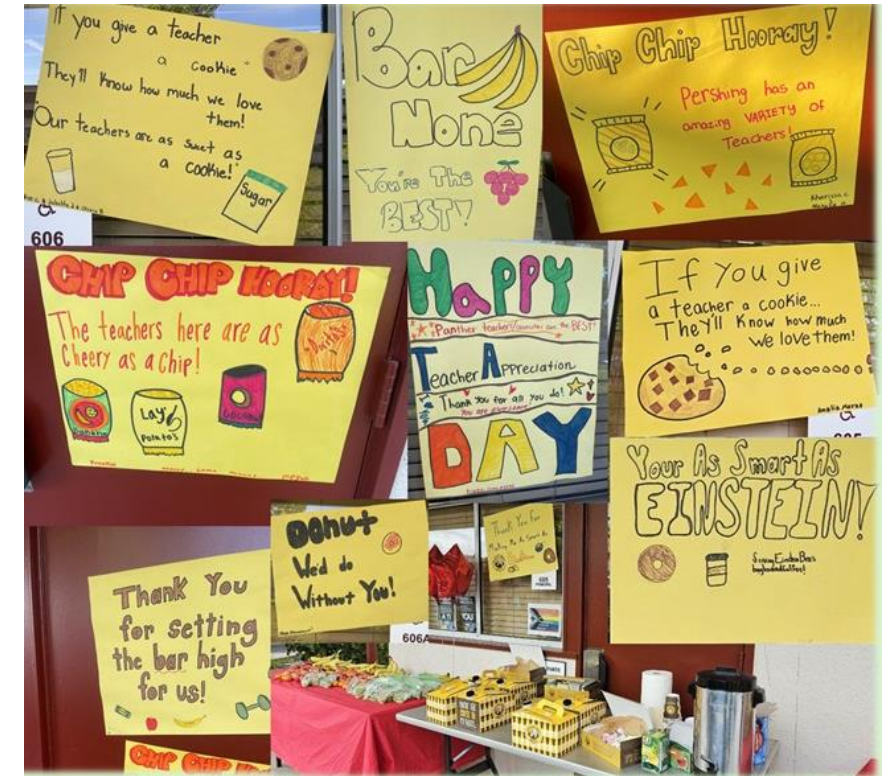 If you give a teacher
a cookie
They'll know how much we love
them!
Our teachers are as sweet as
a cookie!
Sugar
606
Bar
None
You're The
BEST!
Chip Chip Hooray!
Pershing has an
amazing VARIETY of
Teachers!
CHIP CHIP HOORAY!
The teachers here are as
Cheery as a chip!
Banana
Lay's
Potato's
HaPPY
Panther teachers are the BEST!
Teacher APPreciation
Thank you for all you do!
You are awesome
DAY
If you give
a teacher a cookie...
They'll Know how much
we love them!
Your As Smart As
EINSTEIN!
Thank You
for setting
the bar high
for us!
Donut
We'd do
Without You!
606A
Thank You For
Making Me As Smart As
605
CHIP CHIP